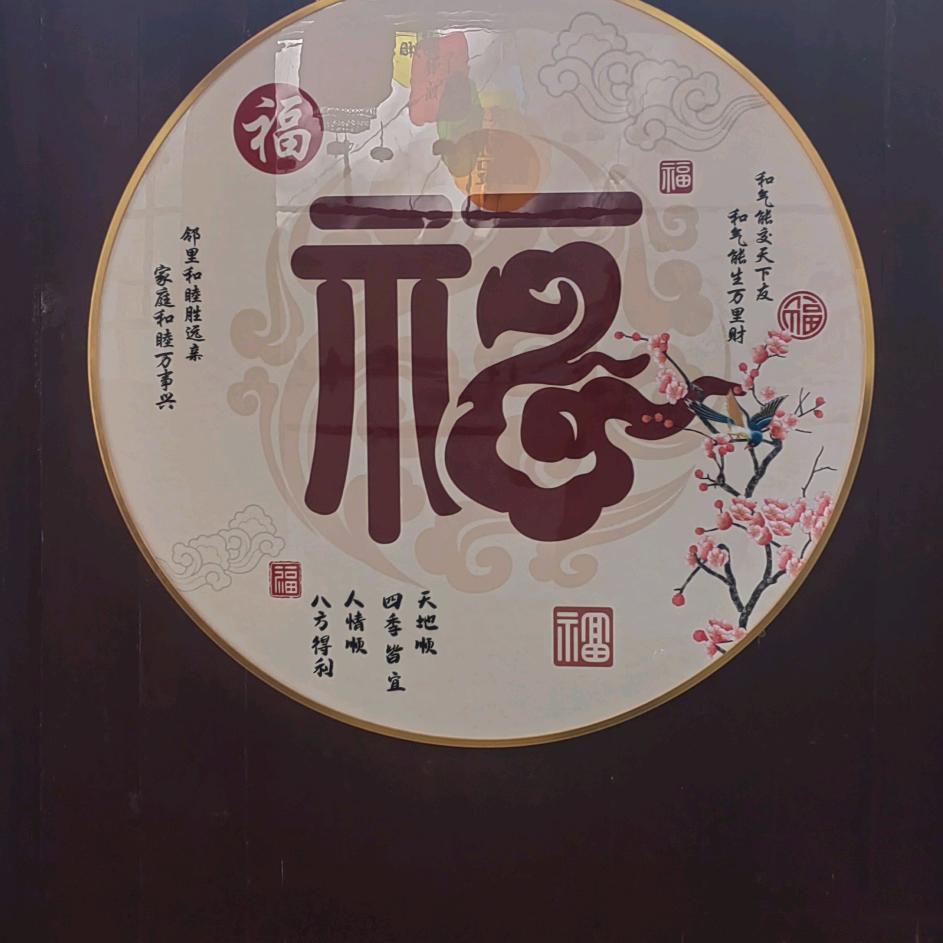 福
福
福
和气能交天下友
和气能生万里财
福
邻里和睦胜远亲
家庭和睦万事兴
福
天地顺
四季皆宜
人情顺
八方得利
福